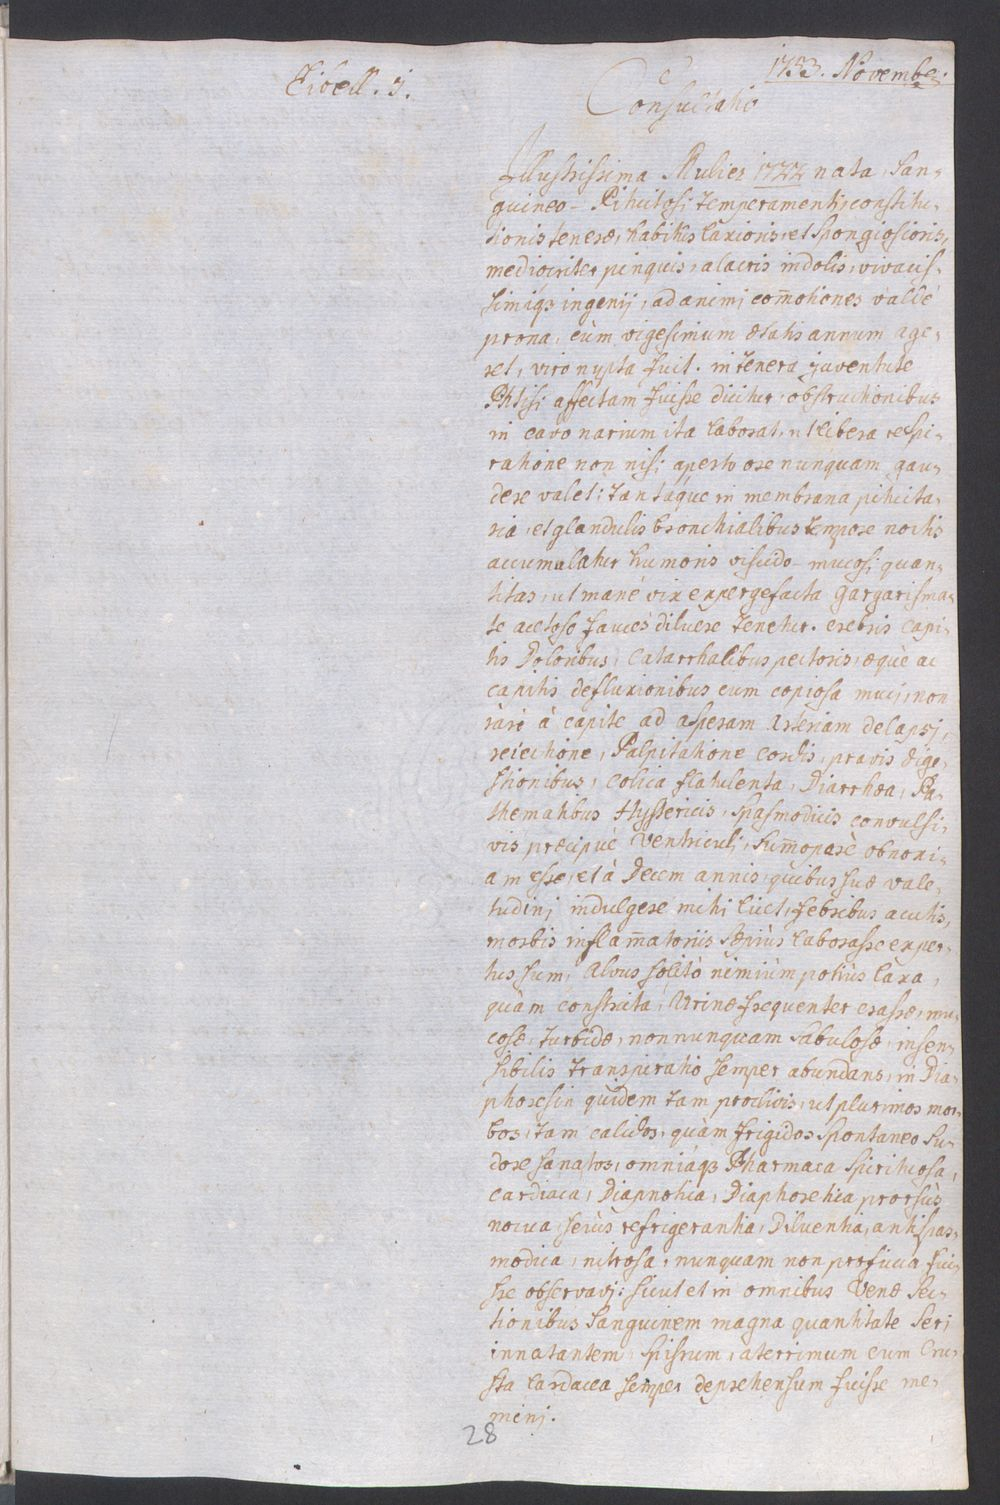 1753. Novembe.
Consultatio
Illustrissima Mulier 1722 nata, San-
guineo-Pituitosi temperamenti, constitu-
tionis teneræ, habitus laxioris, et spongiosioris,
mediocriter pinquis, alacris indolis, vivacis-
simiqз ingenij, ad animi com̄otiones valdè
prona, cùm vigesimum ætatis annum age-
ret, viro nupta fuit. in tenera juventute
Phtisi affectam fuisse dicitur, obstructionibus
in cavo narium ita laborat, ut libera respi-
ratione non nisi aperto ore nunquam gau-
dere valet: tantaque in membrana pituita-
ria, et glandulis bronchialibus tempore noctis
accumulatur humoris viscido-mucosi quan-
titas, ut manè vix expergefacta gargarisma-
te acetoso fauces diluere tenetur. crebris capi-
tis Doloribus, Catarrhalibus pectoris, æquè ac
capitis defluxionibus cum copiosa muci, non
rarè à capite ad asperam Arteriam delapsi,
reiectione, Palpitatione Cordis, pravis dige-
stionibus, Colica flatulenta, Diarrhœa, Pa-
thematibus Hystericis, spasmodicis convulsi-
vis præcipuè Ventriculi, sum̄operè obnoxi-
am esse, et à Decem annis, quibus suæ vale-
tudini indulgere mihi licet, febribus acutis,
morbis inflam̄atoriis sæpiùs laborasse exper-
tus sum, Alvus solitò nimiùm potiùs laxa,
quàm constricta, Urinæ frequenter crassæ, mu-
cosæ, turbidæ, nonnunquam sabulosæ, insen-
sibilis transpiratio semper abundans, in Dia-
phoresin quidem tam proclivis, ut plurimos mor-
bos, tam calidos, quàm frigidos spontaneo su-
dore sanatos, omniáqз Pharmaca spirituosa,
cardiaca, Diapnoica, Diaphoretica prorsùs
nociva, seriùs refrigerantia, Diluentia, antispas-
modica, nitrosa, nunquam non proficua fuis-
se observavi: sicut et in omnibus Venæ Sec-
tionibus Sanguinem magna quantitate Seri
innatantem, spissum, aterrimum cum Cru-
sta Lardacea semper deprehensum fuisse me-
mini.
28